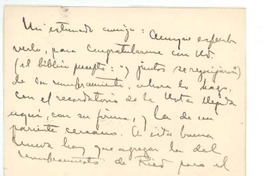 Mi estimado amigo: Aunque espero
verlo, para congratularme con Ud
(el bíblico precepto: "y juntos se regocijarán")
de su nombramiento, ahora lo hago,
con el recordatorio de la Vista llegada
aquí, con su firma, y la de un
pariente cercano. A esta buena
nueva hay que agregar la del
nombramiento de Ríos para el